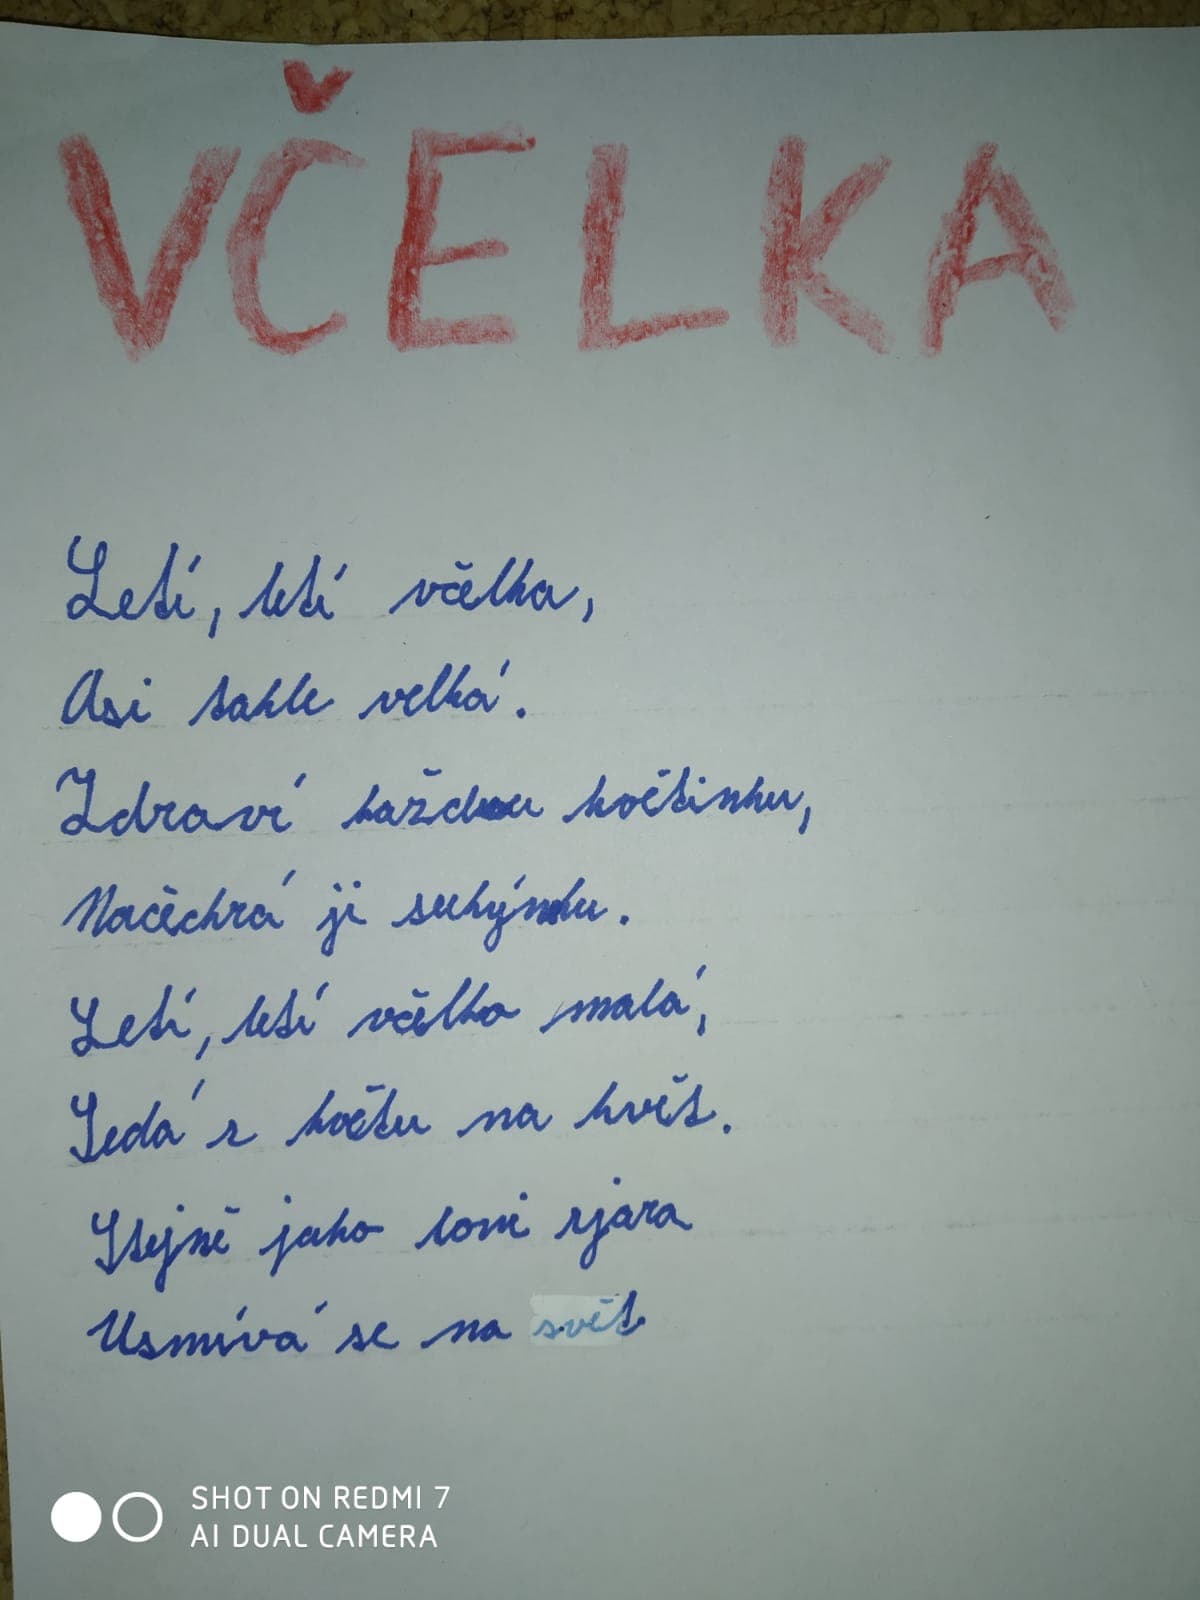 VČELKA
Letí, letí včelka,
Asi takle velká.
Zdraví každou květinku,
Načechrá ji sukýnku.
Letí, letí včelka malá,
Sedá z květu na květ.
Stejně jako loni zjara
Usmívá se na svět
SHOT ON REDMI 7
AI DUAL CAMERA